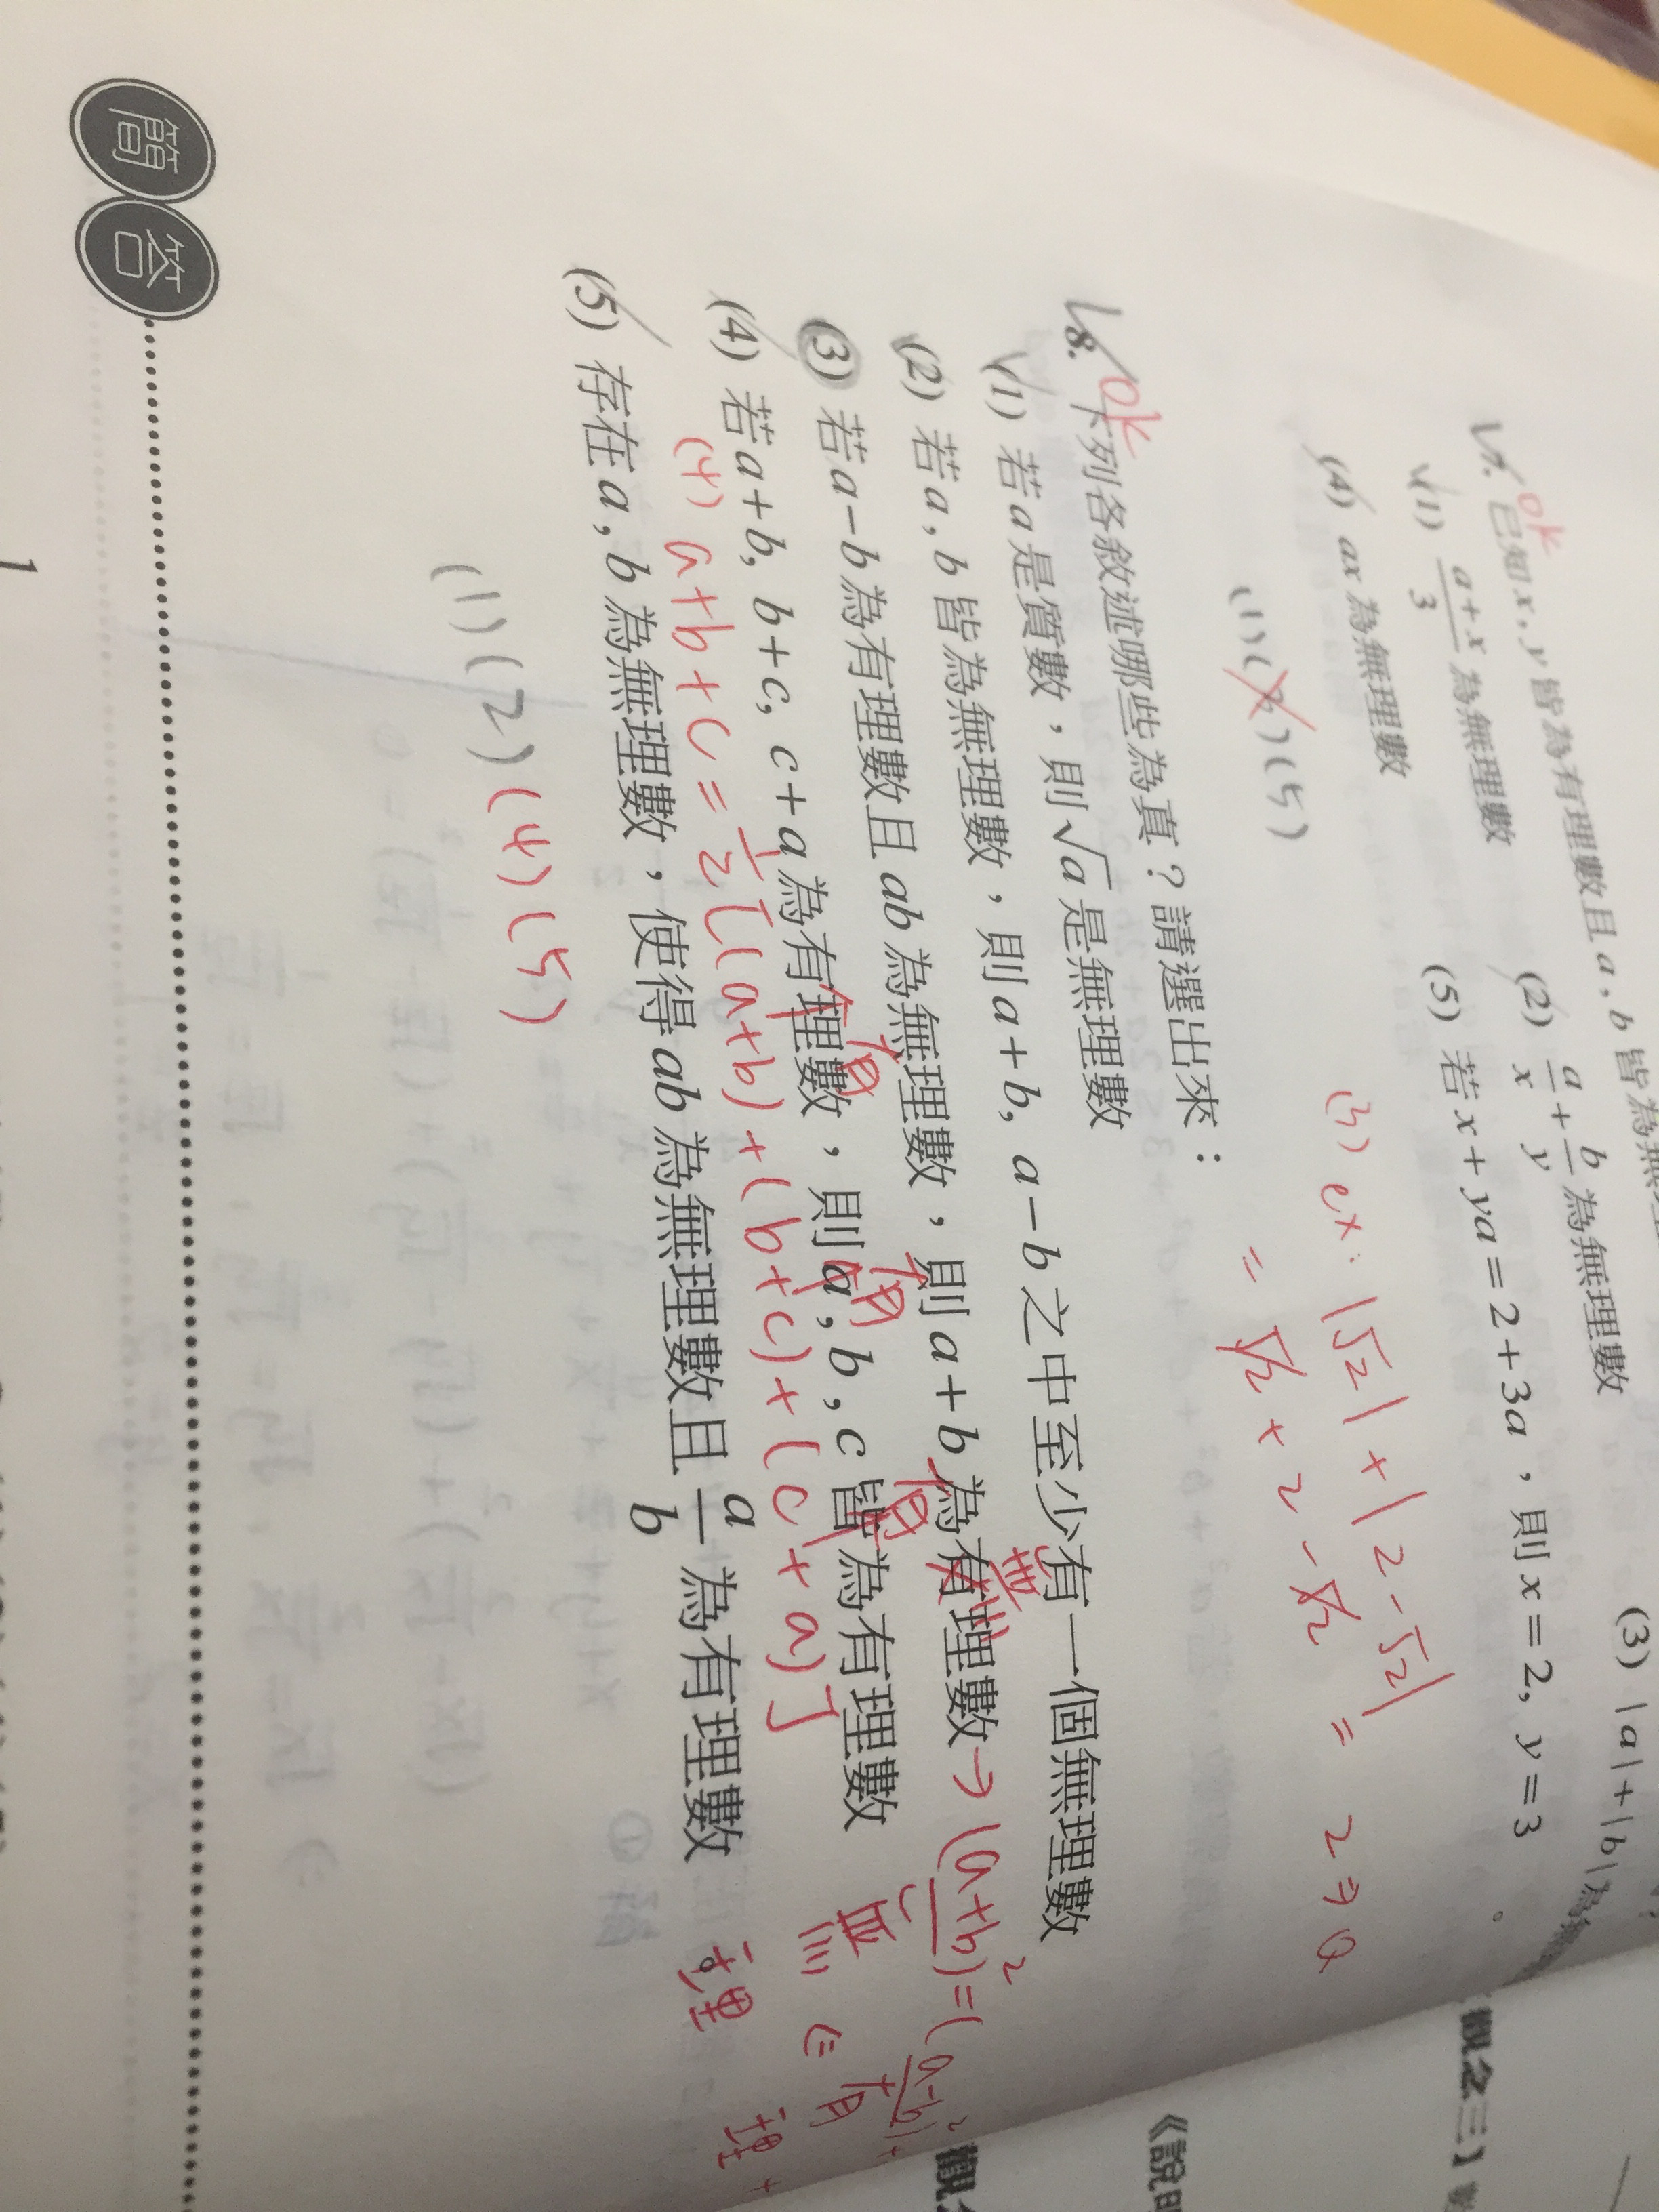 ok
7. 已知x, y皆為有理數且a, b皆為無
(1) \frac{a+x}{3}為無理數
(2) \frac{a}{x}+\frac{b}{y}為無理數
(3) |a|+|b|為
(4) ax為無理數
(5) 若x+ya=2+3a，則x=2, y=3
(3) ex: |√2|+|2-√2| = 2 ⇒ Q
= √2+2-√2
(1)( )(5)
ok
8. 下列各敘述哪些為真？請選出來：
(1) 若a是質數，則√a是無理數
(2) 若a, b皆為無理數，則a+b, a-b之中至少有一個無理數
(3) 若a-b為有理數且ab為無理數，則a+b為有理數 → (a+b)²=(a-b)²+
無
有
有
有
無理 ⇐ 有理+
(4) 若a+b, b+c, c+a為有理數，則a, b, c皆為有理數
(4) a+b+c=\frac{1}{2}[(a+b)+(b+c)+(c+a)]
(5) 存在a, b為無理數，使得ab為無理數且\frac{a}{b}為有理數
(1)(2)(4)(5)
簡答
1
觀念三】
《說明
觀念